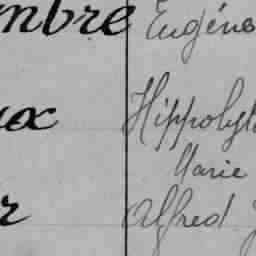 mbre Eugéne
ux Hippolyt
Marie
r Alfred J